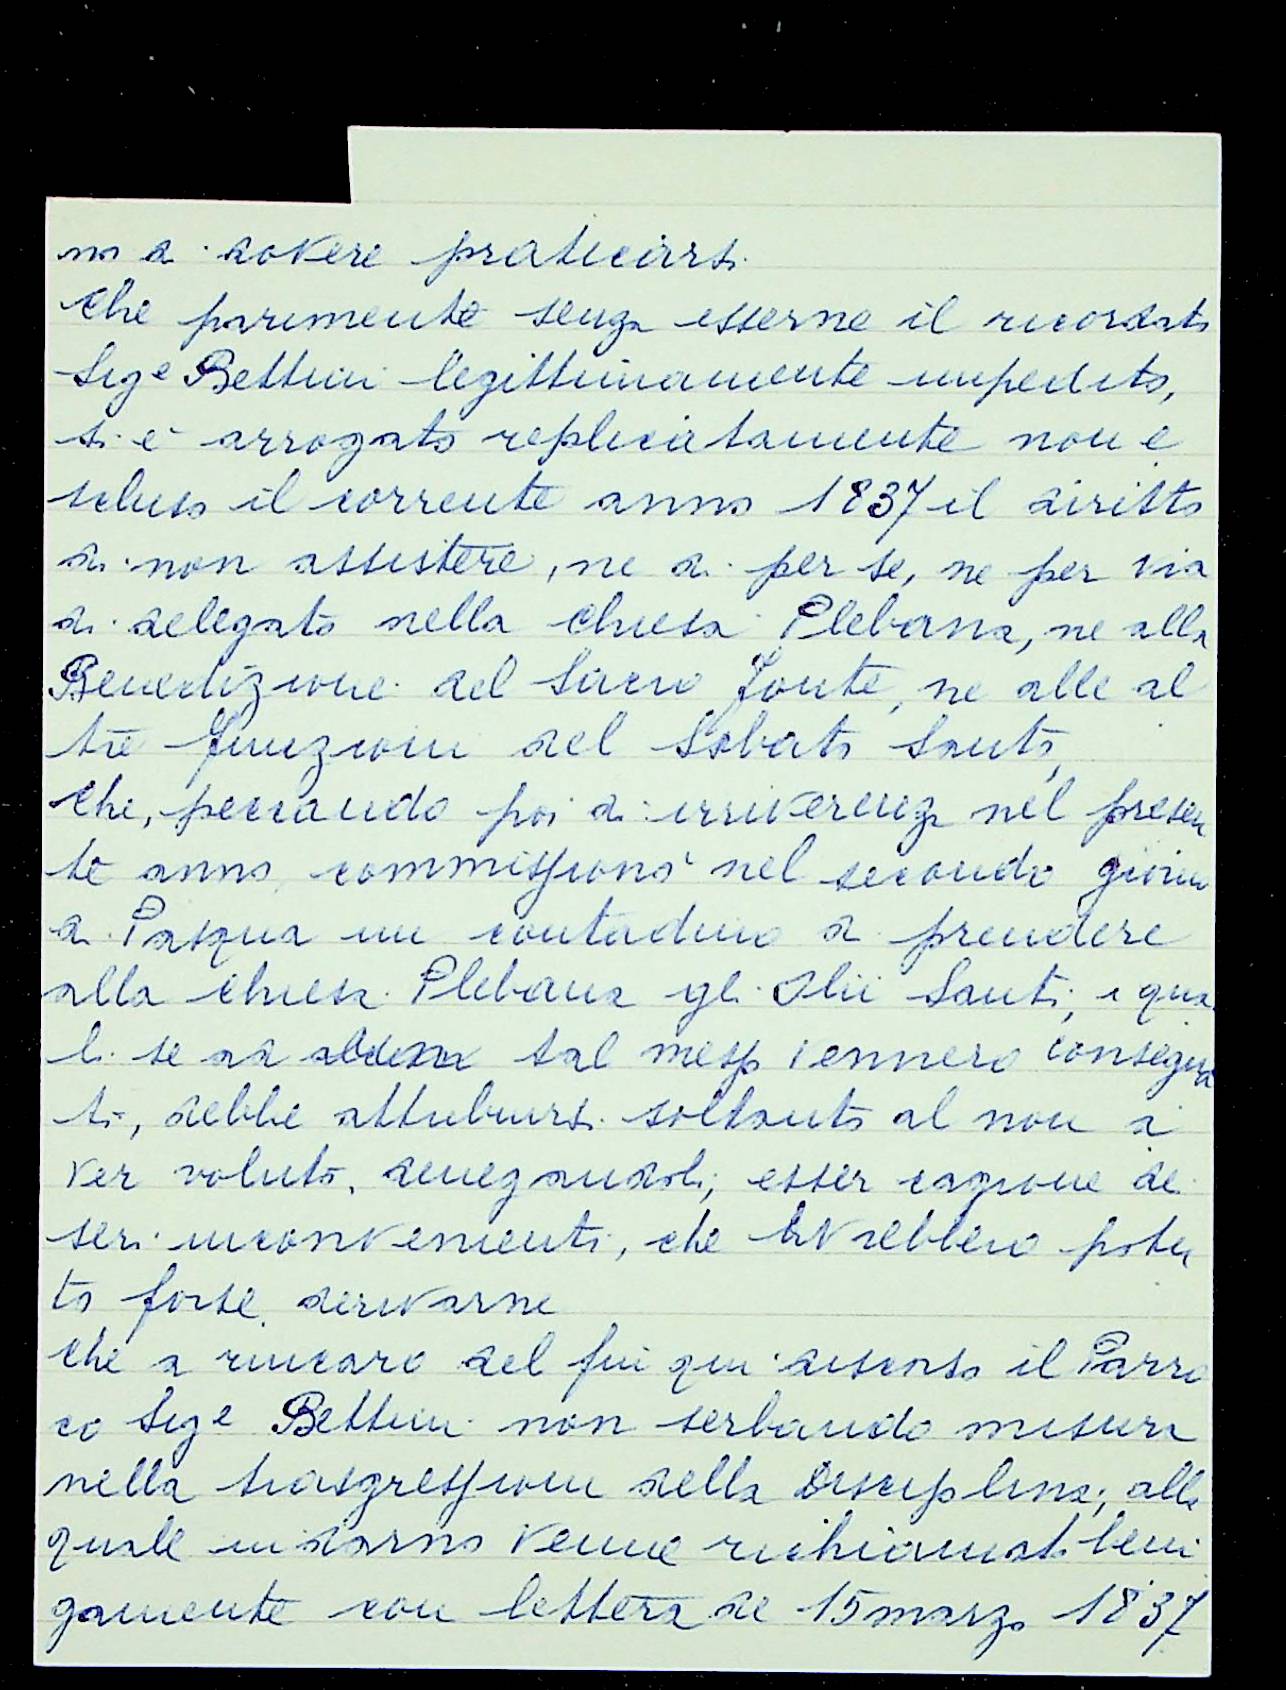 no a dovere praticarsi.
Che parimente senza esserne il ricordato
Sigᵉ Bettini legittimamente impedito,
si è arrogato replicatamente non e
scluso il corrente anno 1837 il diritto
di non assistere, ne di per se, ne per via
di delegato nella Chiesa Plebana, ne alla
Benedizione del Sacro Fonte, ne alle al
tre funzioni del Sabato Santo,
Che, peccando poi di irriverenza nel presen
te anno, commissionò nel secondo giorno
di Pasqua un contadino a prendere
alla Chiesa Plebana gli Olii Santi, i qua
li se ad tal messo vennero consegna
ti, debbe attribuirsi soltanto al non a
ver voluto, denegandoli, esser cagione de
seri inconvenienti, che avrebbero potu
to forse derivarne
Che a rincaro del fin qui discorso il Parro
co Sigᵉ Bettini non serbando misura
nella trasgressioni della Disciplina, alla
quale indarno venne richiamato beni
gamente con lettera de 15 marzo 1837